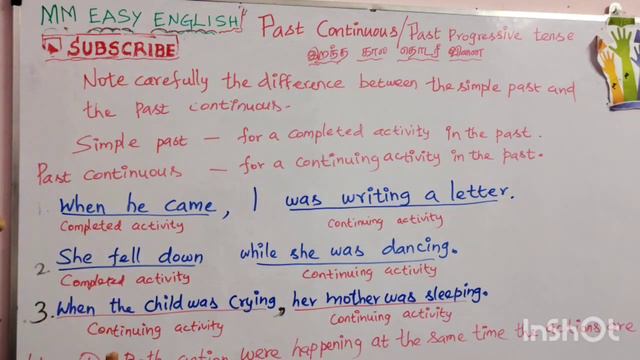 MM EASY ENGLISH
Past Continuous/Past Progressive tense
SUBSCRIBE
இறந்த கால தொடர் வினை
Note carefully the difference between the simple past and
the past continuous.
Simple past — for a completed activity in the past.
Past continuous — for a continuing activity in the past.
1. When he came, I was writing a letter.
Completed activity continuing activity
2. She fell down while she was dancing.
Completed activity Continuing activity
3. When the child was crying, her mother was sleeping.
Continuing activity Continuing activity
Both action were happening at the same time the actions are
InShot